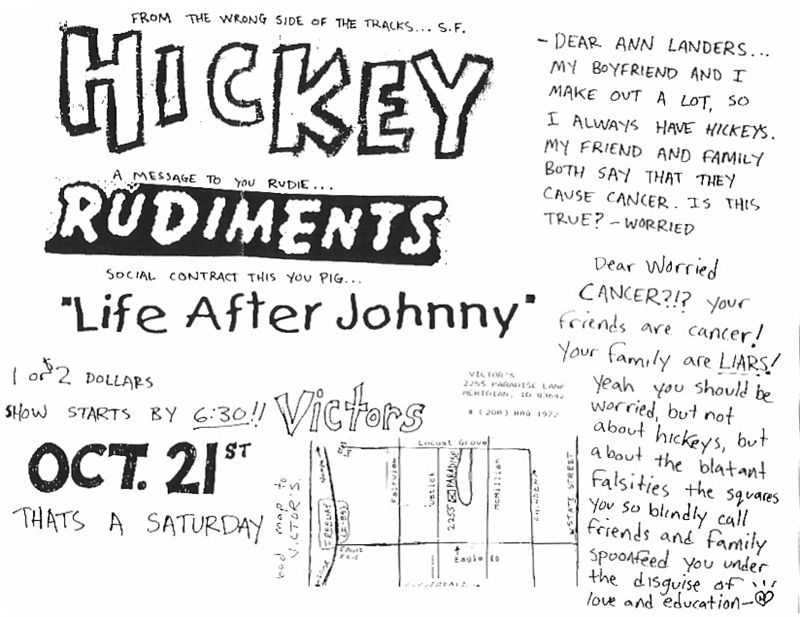 FROM THE WRONG SIDE OF THE TRACKS... S.F.
HICKEY
A MESSAGE TO YOU RUDIE...
RUDIMENTS
SOCIAL CONTRACT THIS YOU PIG...
"Life After Johnny"
1 or $2 DOLLARS
SHOW STARTS BY 6:30!!
OCT. 21ST
THATS A SATURDAY
- DEAR ANN LANDERS...
MY BOYFRIEND AND I
MAKE OUT A LOT, SO
I ALWAYS HAVE HICKEYS.
MY FRIEND AND FAMILY
BOTH SAY THAT THEY
CAUSE CANCER. IS THIS
TRUE? - WORRIED
Dear Worried
CANCER?!? your
friends are cancer!
Your family are LIARS!
Yeah you should be
worried, but not
about hickeys, but
about the blatant
falsities the squares
you so blindly call
friends and family
spoonfeed you under
the disguise of
love and education-
Victors
VICTOR'S
2255 PARADISE LANE
MERIDIAN, ID 83642
bad map to
VICTOR'S.
Locust Grove
Fairview
Ustick
2255 PARADISE
McMillian
CHINDEN
STATE STREET
FREEWAY
Eagle Rd